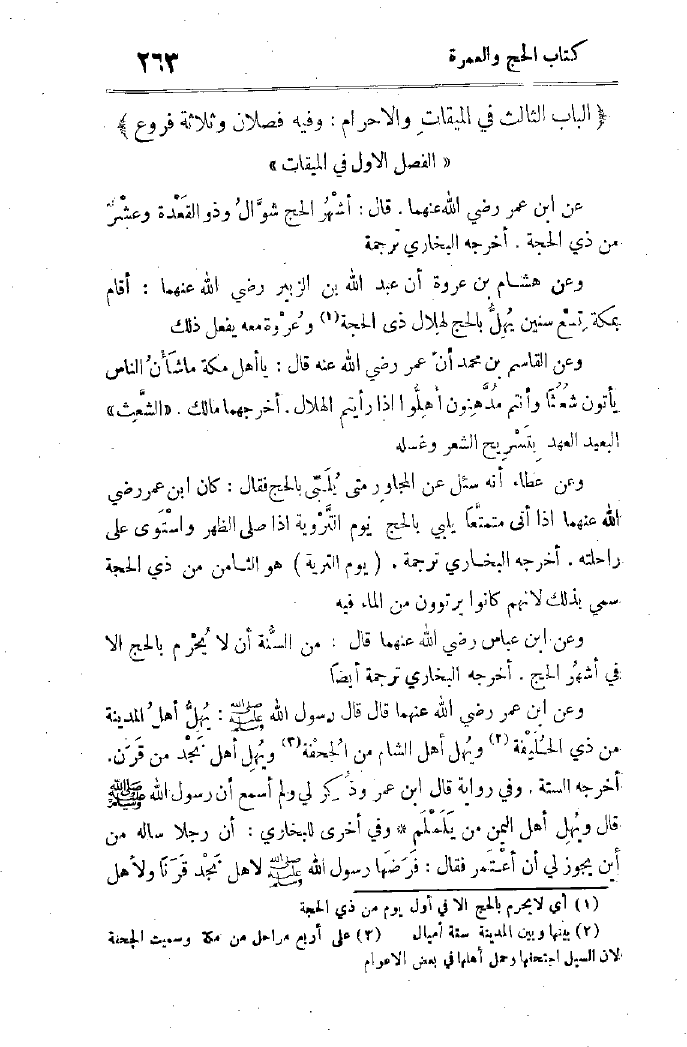 كتاب الحج والعمرة ٢٦٣
﴿ الباب الثالث في الميقات والاحرام : وفيه فصلان وثلاثة فروع ﴾
« الفصل الاول في الميقات »
عن ابن عمر رضي الله عنهما . قال : أشْهُرُ الحج شوَّالُ وذو القَعْدة وعشْرٌ
من ذي الحجة . أخرجه البخاري ترجمة
وعن هشام بن عروة أن عبد الله بن الزبير رضي الله عنهما : أقام
بمكة تِسْع سنين يُهِلُّ بالحج لهلال ذى الحجة (١) وعُرْوة معه يفعل ذلك
وعن القاسم بن محمد أنّ عمر رضي الله عنه قال : ياأهل مكة ماشأنُ الناس
يأتون شُعْثًا وأنتم مُدَّهِنون أهِلُّوا اذا رأيتم الهلال . أخرجهما مالك . «الشَّعِث»
البعيد العهد بِتَسْريح الشعر وغسله
وعن عطاء أنه سئل عن المجاور متى يُلَبّى بالحج فقال : كان ابن عمر رضي
الله عنهما اذا أتى متمتعًا يلبي بالحج يوم التَّرْوية اذا صلى الظهر واسْتَوى على
راحلته . أخرجه البخاري ترجمة . ( يوم التربة ) هو الثامن من ذي الحجة
سمي بذلك لانهم كانوا يرتوون من الماء فيه
وعن ابن عباس رضي الله عنهما قال : من السُّنة أن لا يُحْرِم بالحج الا
في أشهُر الحج . أخرجه البخاري ترجمة أيضًا
وعن ابن عمر رضي الله عنهما قال قال رسول الله ﷺ : يُهِلُّ أهلُ المدينة
من ذي الحُلَيْفة (٢) ويُهِل أهل الشام من الجُحْفة (٣) ويُهِل أهل نَجْد من قَرْن.
أخرجه الستة . وفي رواية قال ابن عمر وذُكِر لي ولم أسمع أن رسول الله ﷺ
قال ويُهِل أهل اليمن من يَلَمْلَم * وفي أخرى للبخاري : أن رجلا ساله من
أين يجوز لي أن أعْتَمر فقال : فَرَضَها رسول الله ﷺ لاهل نَجْد قَرْنًا ولأهل
(١) أي لايحرم بالحج الا في أول يوم من ذي الحجة
(٢) بينها وبين المدينة ستة أميال (٣) على أربع مراحل من مكة وسميت الجحفة
لان السيل اجتحفها وحمل أهلها في بعض الاعوام